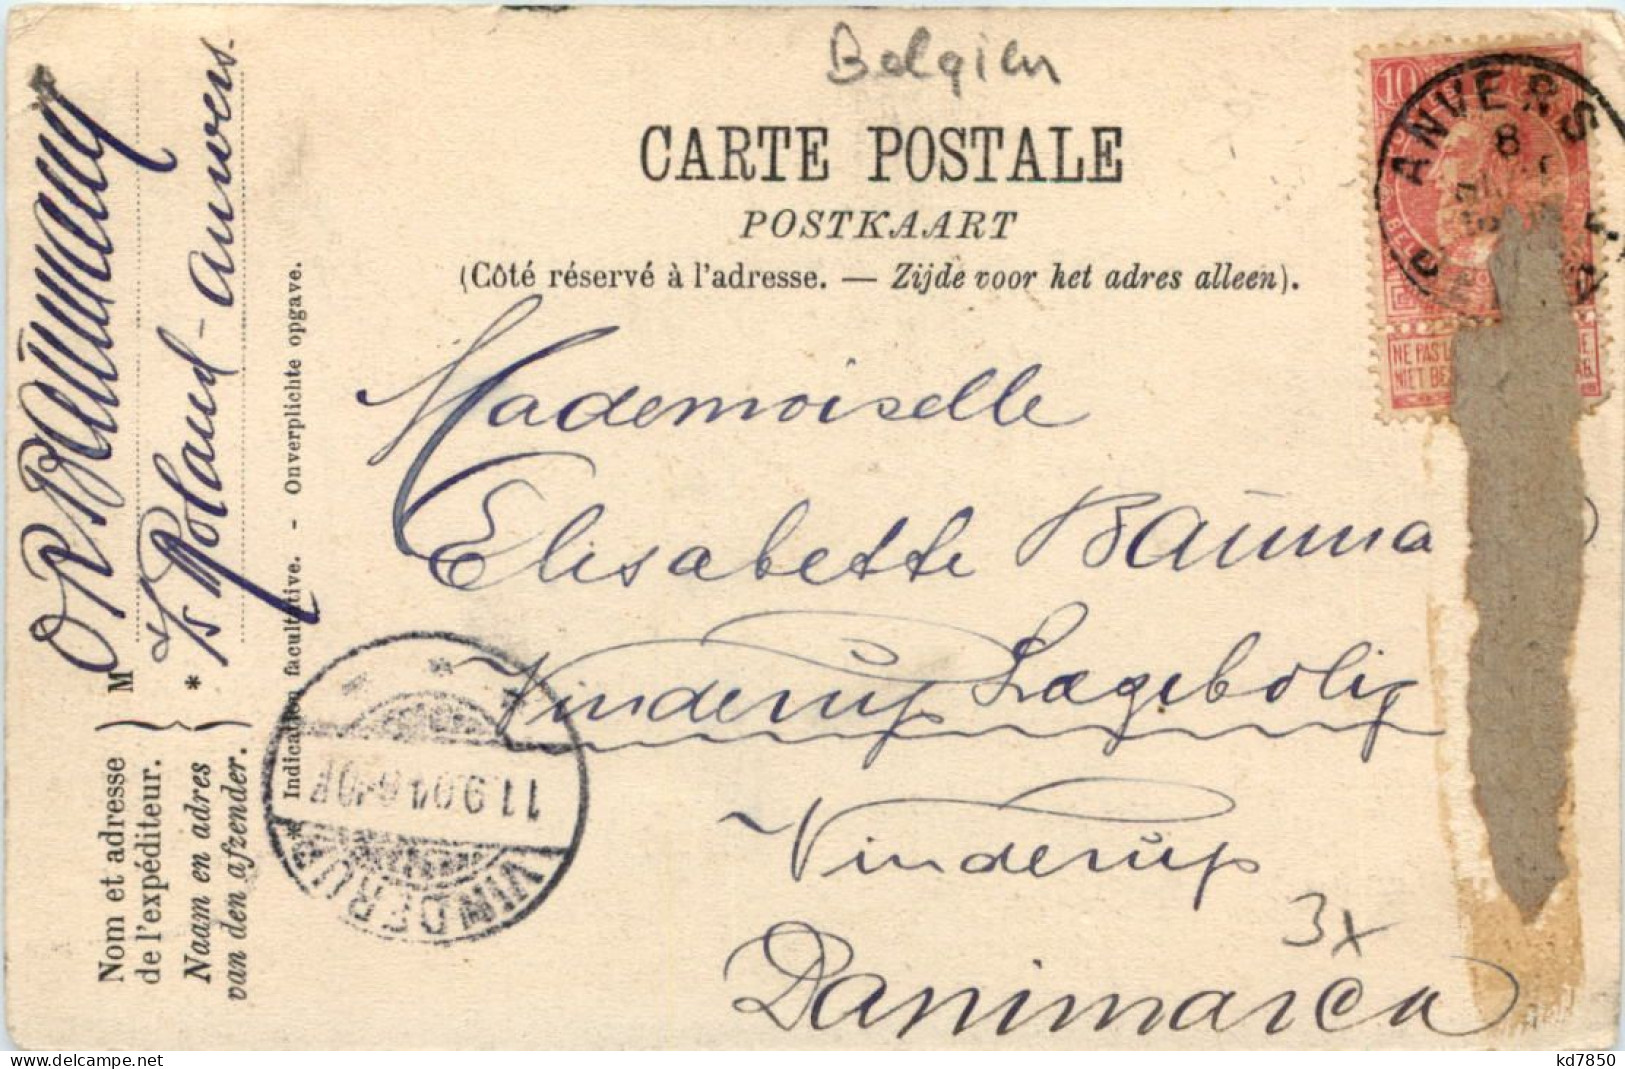 Belgien
CARTE POSTALE
POSTKAART
(Côté réservé à l'adresse. — Zijde voor het adres alleen).
10
ANVERS
8
NE PAS L
NIET BE
Mademoiselle
Elisabette Bauma
Vinderup Lægebolig
Vinderup
3x
Danimarca
VINDERUP
11.9.04
Indication facultative. - Onverplichte opgave.
Nom et adresse
de l'expéditeur.
M
Naam en adres
van den afzender.
*
Roland - Anvers.
kd7850